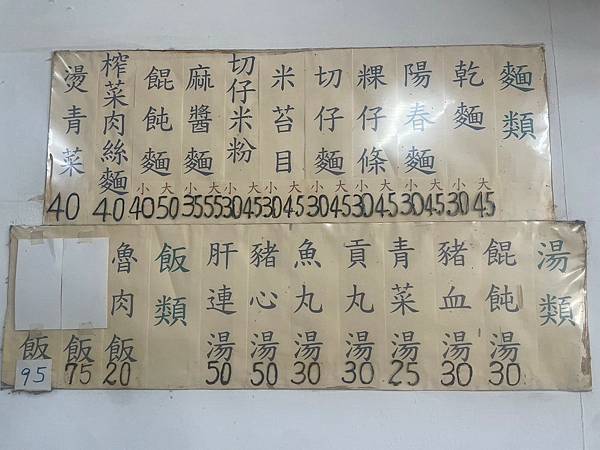 麵類
乾麵 小30 大45
陽春麵 小30 大45
粿仔條 小30 大45
切仔麵 小30 大45
米苔目 小30 大45
切仔米粉 小30 大45
麻醬麵 小35 大55
餛飩麵 小40 大50
榨菜肉絲麵 40
燙青菜 40
湯類
餛飩湯 30
豬血湯 30
青菜湯 25
貢丸湯 30
魚丸湯 30
豬心湯 50
肝連湯 50
飯類
魯肉飯 20
飯 75
飯 95